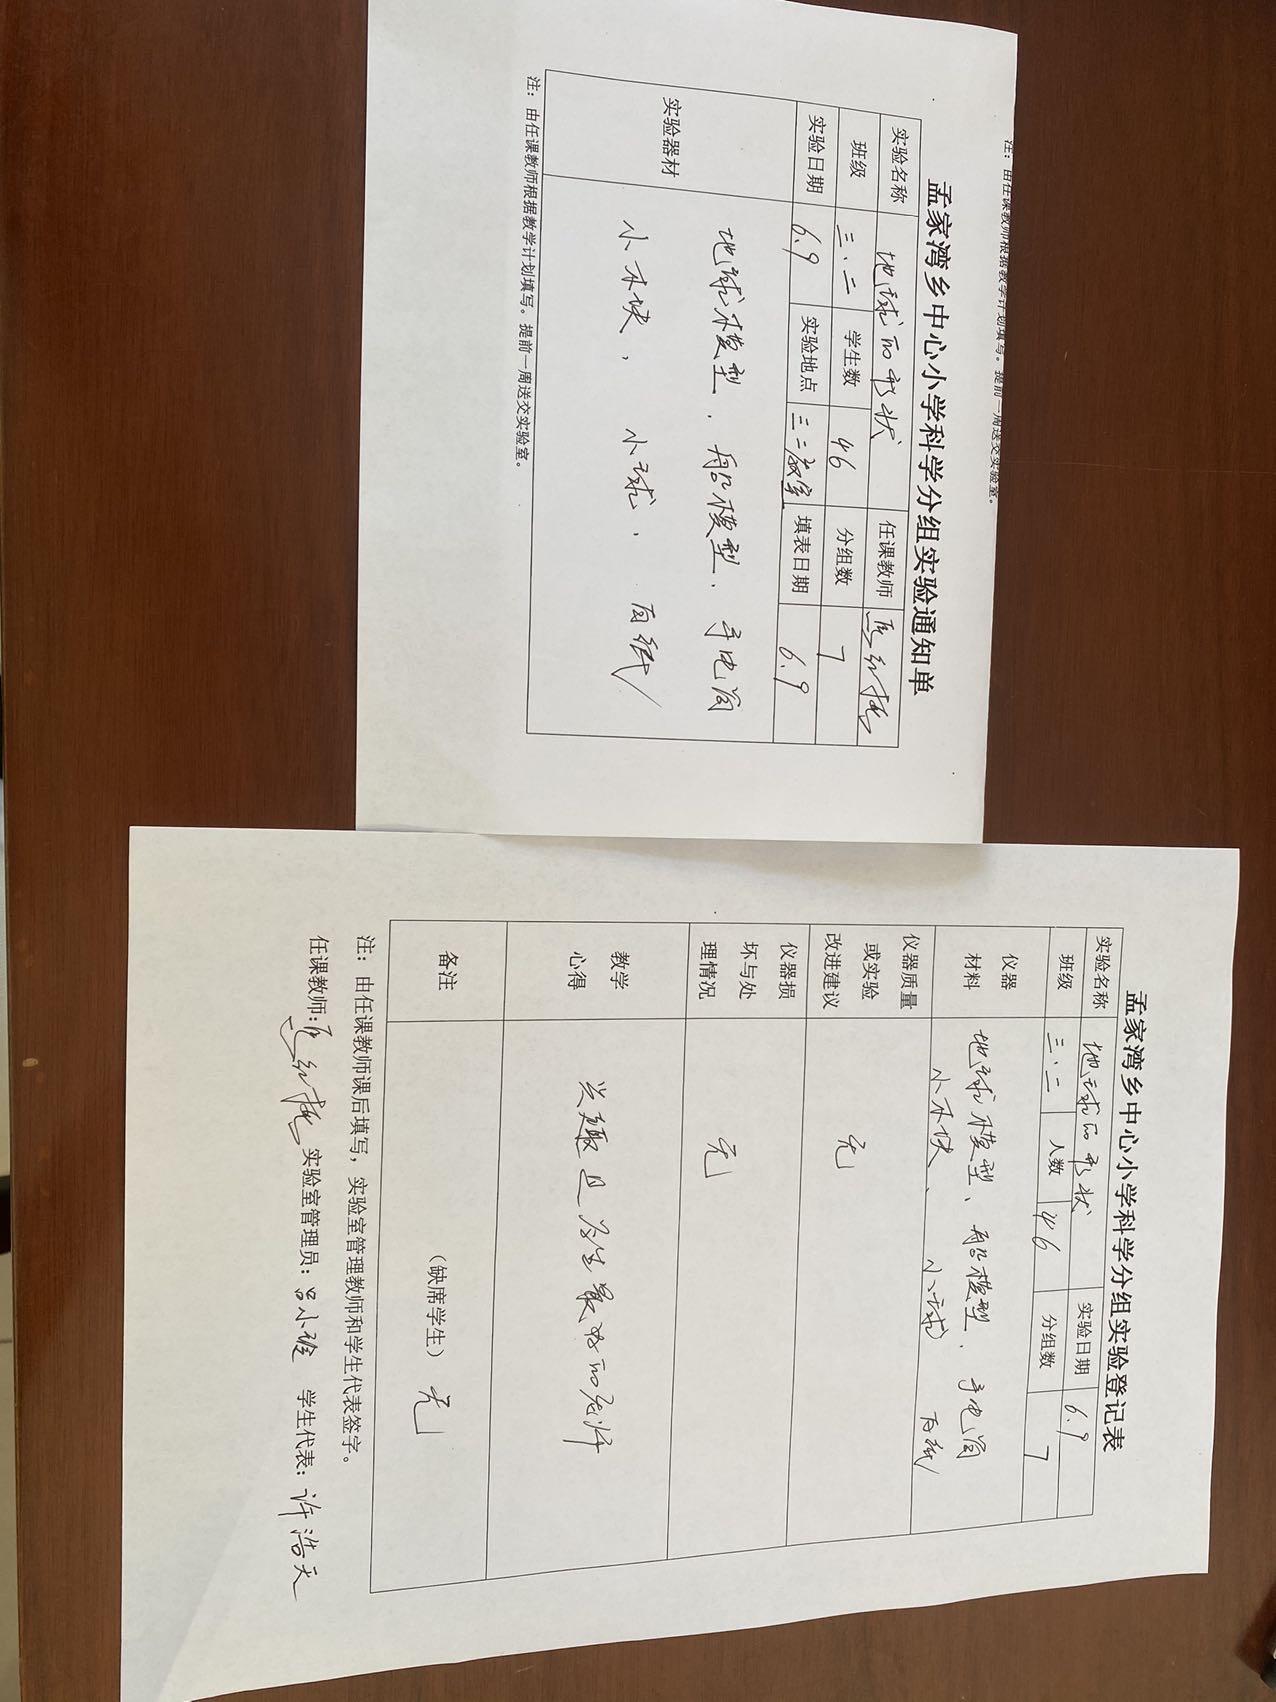 注：由任课教师根据教学计划填写。提前一周送交实验室。
孟家湾乡中心小学科学分组实验通知单
实验名称 地球的形状 任课教师
班级 三.二 学生数 46 分组数 7
实验日期 6.9 实验地点 三二教室 填表日期 6.9
实验器材 地球模型、船模型、手电筒
小木块、小球、白纸
注：由任课教师根据教学计划填写。提前一周送交实验室。
孟家湾乡中心小学科学分组实验登记表
实验名称 地球的形状 实验日期 6.9
班级 三.二 人数 46 分组数 7
仪器材料 地球模型、船模型、手电筒
小木块、小球 白纸
仪器质量或实验改进建议 无
仪器损坏与处理情况 无
教学心得 兴趣是学生最好的老师
备注 （缺席学生） 无
注：由任课教师课后填写，实验室管理教师和学生代表签字。
任课教师： 实验室管理员：吕小 学生代表：许浩天